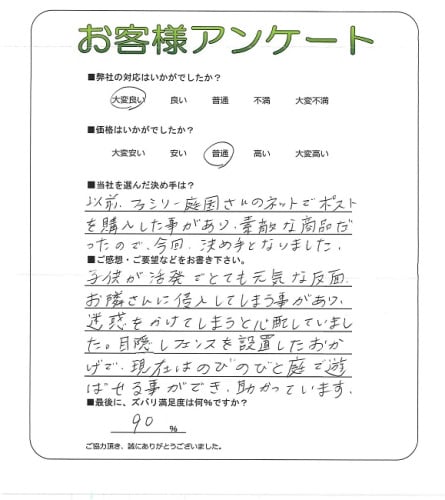 お客様アンケート
■弊社の対応はいかがでしたか？
大変良い 良い 普通 不満 大変不満
■価格はいかがでしたか？
大変安い 安い 普通 高い 大変高い
■当社を選んだ決め手は？
以前、ファミリー庭園さんのネットでポスト
を購入した事があり、素敵な商品だ
ったので、今回、決め手となりました。
■ご感想・ご要望などをお書き下さい。
子供が活発でとても元気な反面、
お隣さんに侵入してしまう事があり、
迷惑をかけてしまうと心配していまし
た。目隠しフェンスを設置したおか
げで、現在はのびのびと庭で遊
ばせる事ができ、助かっています。
■最後に、ズバリ満足度は何%ですか？
90 %
ご協力頂き、誠にありがとうございました。